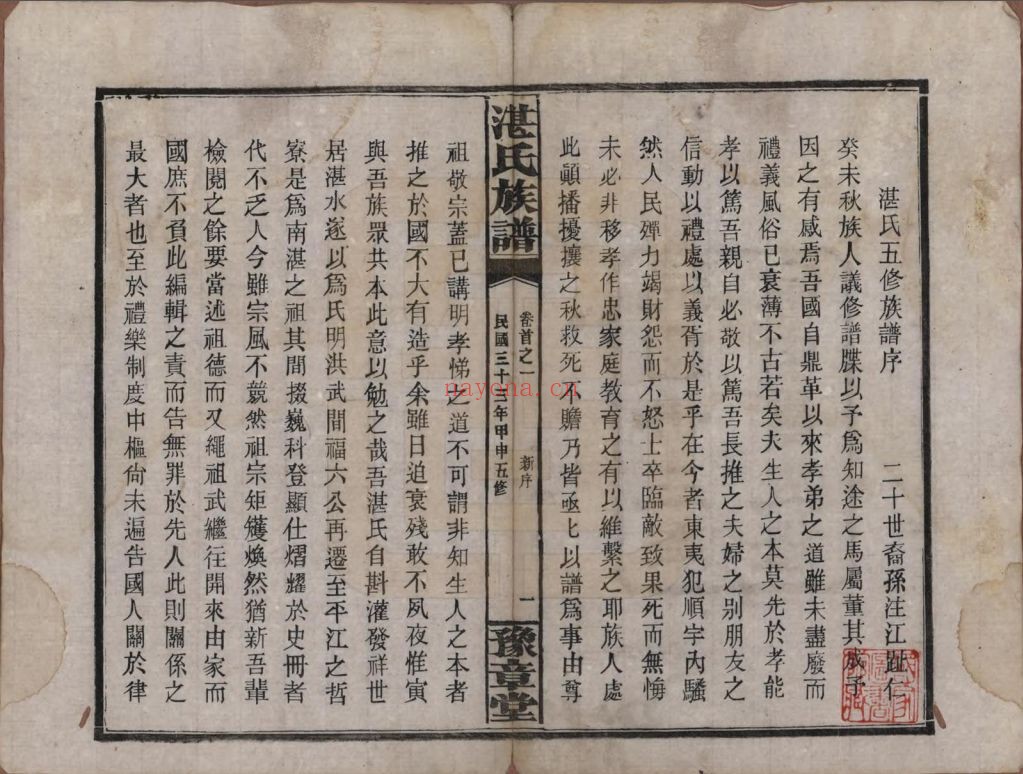 湛氏五修族譜序 二十世裔孫注江趾仁
癸未秋族人議修譜牒以予爲知途之馬屬董其成予
因之有感焉吾國自鼎革以來孝弟之道雖未盡廢而
禮義風俗已衰薄不古若矣夫生人之本莫先於孝能
孝以篤吾親自必敬以篤吾長推之夫婦之別朋友之
信動以禮處以義胥於是乎在今者東夷犯順宇內騷
然人民殫力竭財怨而不怒士卒臨敵致果死而無悔
未必非移孝作忠家庭教育之有以維繫之耶族人處
此顚播擾攘之秋救死不贍乃皆亟亟以譜爲事由尊
湛氏族譜
卷首之一 新序
民國三十三年甲申五修
一
豫章堂
祖敬宗蓋已講明孝悌之道不可謂非知生人之本者
推之於國不大有造乎余雖日迫衰殘敢不夙夜惟寅
與吾族眾共本此意以勉之哉吾湛氏自斟灌發祥世
居湛水遂以爲氏明洪武間福六公再遷至平江之哲
寮是爲南湛之祖其間掇巍科登顯仕熠燿於史冊者
代不乏人今雖宗風不競然祖宗矩矱煥然猶新吾輩
檢閱之餘要當述祖德而又繩祖武繼往開來由家而
國庶不負此編輯之責而告無罪於先人此則關係之
最大者也至於禮樂制度中樞尙未遍告國人關於律
nayona.cn